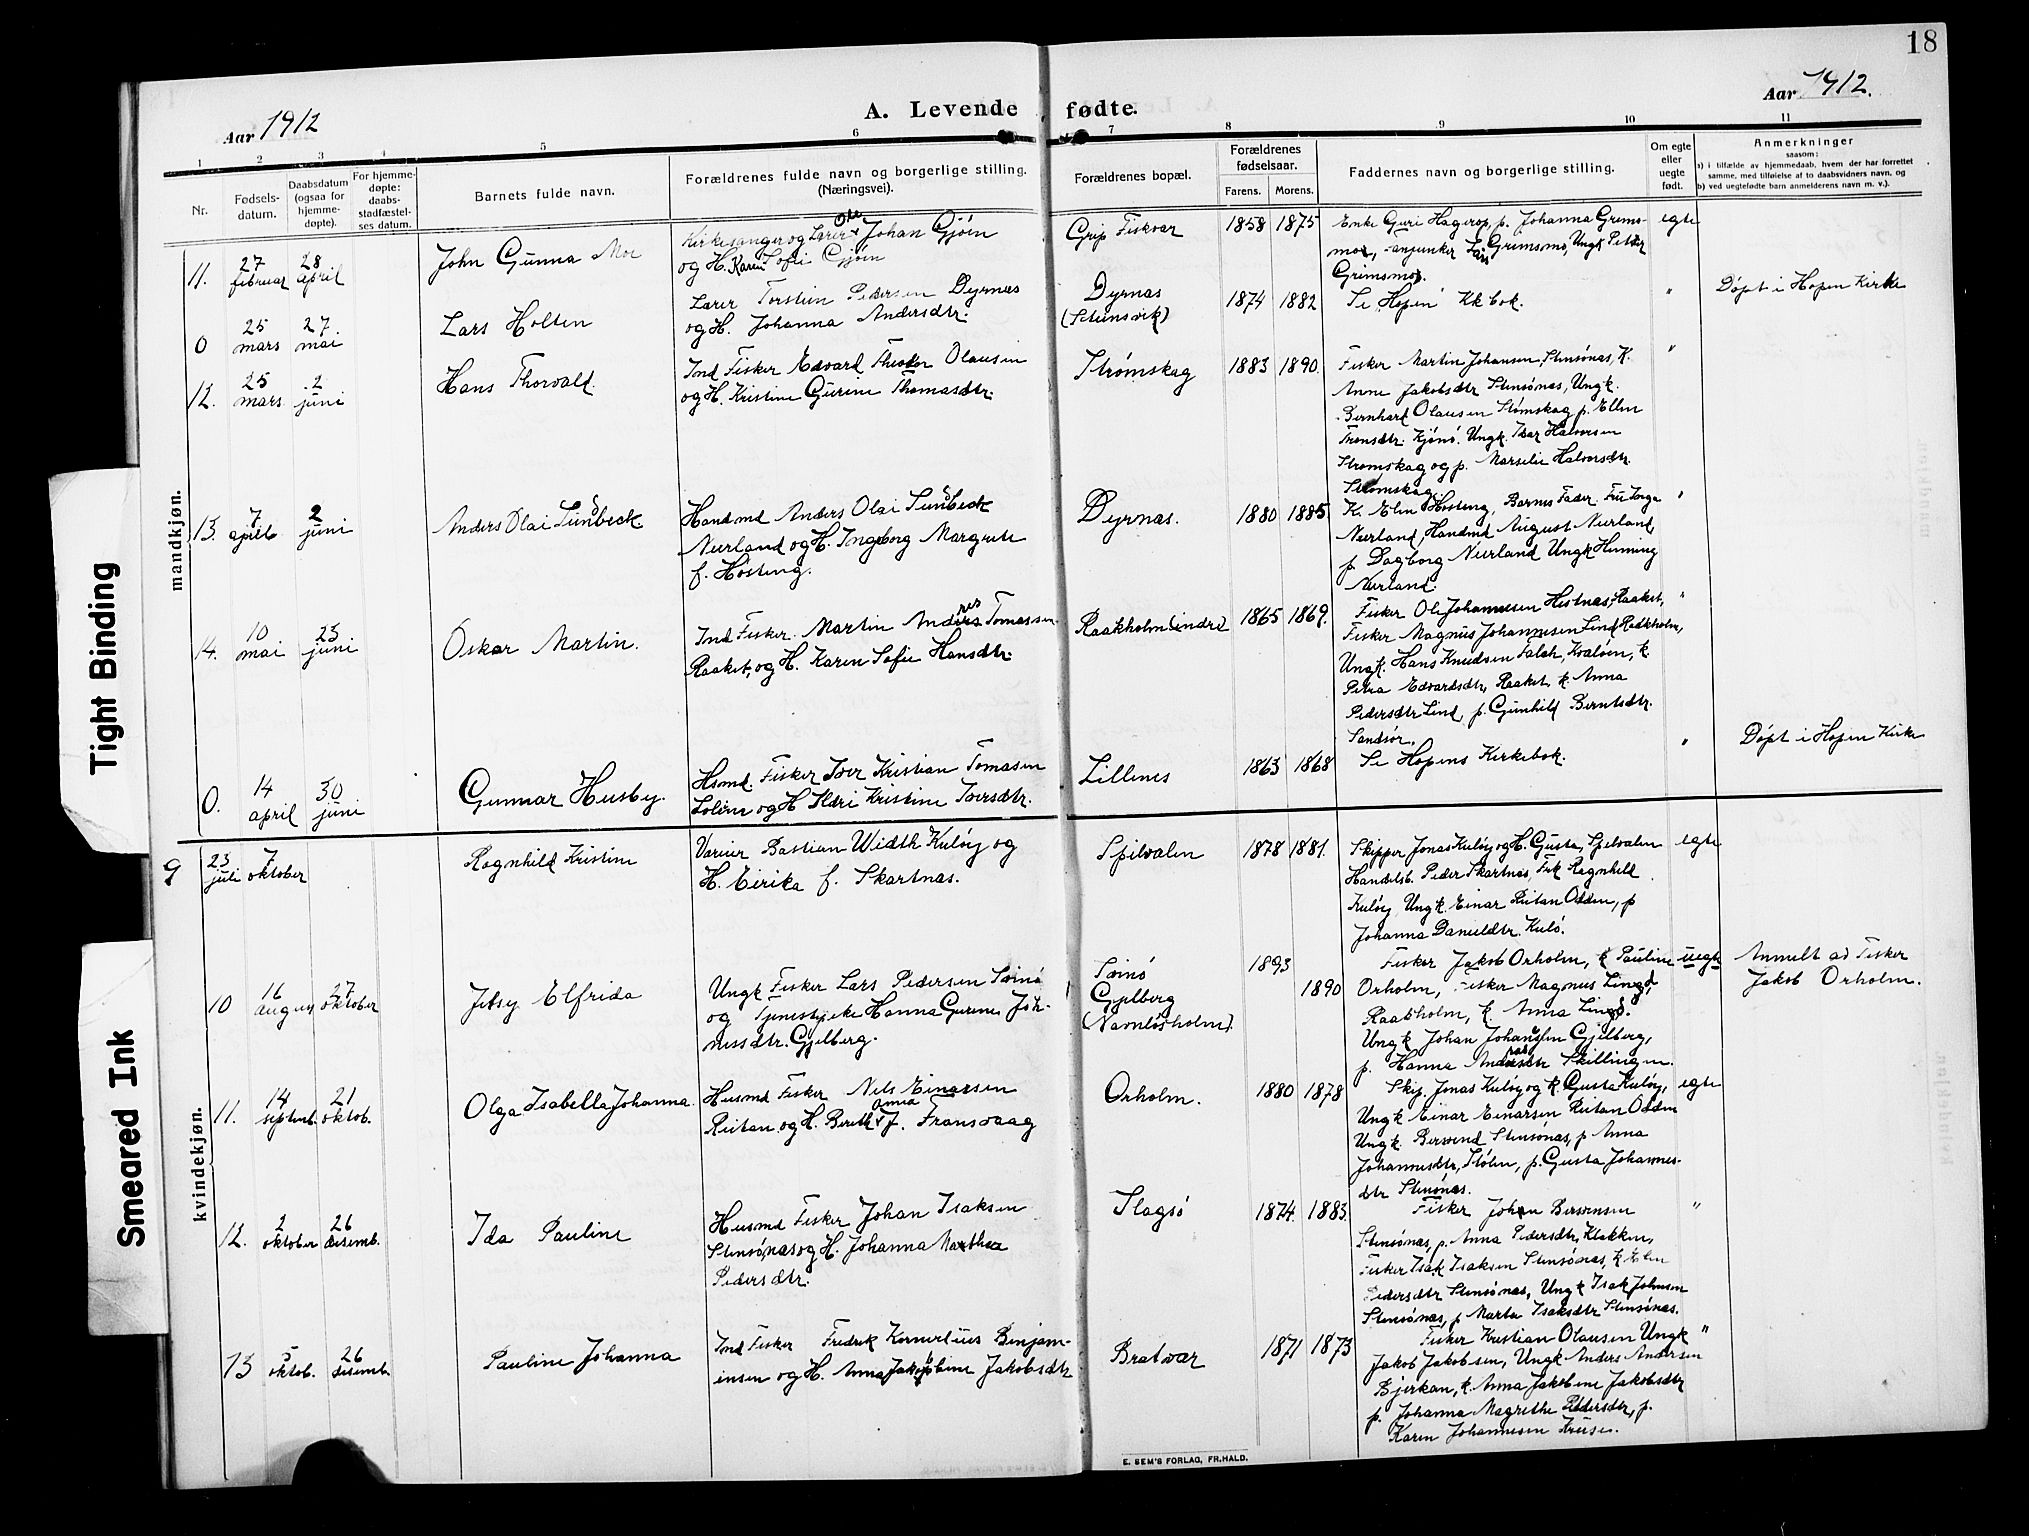 18
Aar 1912
A. Levende fødte.
Aar 1912.
1 2 3 4 5 6 7 8 9 10 11
Nr.
Fødsels-
datum.
Daabsdatum
(ogsaa for
hjemme-
døpte).
For hjemme-
døpte:
daabs-
stadfæstel-
ses datum.
Barnets fulde navn.
Forældrenes fulde navn og borgerlige stilling.
(Næringsvei).
Forældrenes bopæl.
Forældrenes
fødselsaar.
Farens. Morens.
Faddernes navn og borgerlige stilling.
Om egte
eller
uegte
født.
Anmerkninger
saasom:
a) i tilfælde av hjemmedaab, hvem der har forrettet
samme, med tilføielse af to daabsvidners navn, og
b) ved uegtefødte barn anmelderens navn m. v.).
mandkjøn.
11.
27
februar
28
april
John Gunna Moe
Kirkesanger og Lærer Ole Johan Gjøen
og H. Karen Sofie Gjøen
Grip Fiskvær
1858 1875
Enke Guri Hagerop, p. Johanna Grims-
mo, Fanjunker Lars Grimsmo, Ungk Petter
Grimsmo.
egte
0
25
mars
27.
mai
Lars Holten
Lærer Torstein Pedersen Dyrnæs
og H. Johanna Andersdtr.
Dyrnæs
(Stensvik)
1874 1882
Se Hopen Kk bok.
"
Døpt i Hopen Kirke
12.
25
mars
2
juni
Hans Thorvald.
Ind Fisker Edvard Theodor Olausen
og H. Kristine Gurine Thomasdtr.
Strømskag
1883 1890.
Fisker Martin Johansen, Stensønæs, K.
Anne Jakobsdtr Stensønæs, Ungk.
Bernhard Olausen Stømskag p. Ellen
Kjønø. Ungk. Iver Halvorsen
Strømskag og p. Marselie Halvorsdtr.
Strømskag.
"
13.
7
april
2
juni
Anders Olai Sundbeck
Handmd Anders Olai Sundbeck
Neerland og H. Ingeborg Margrete
f. Høsteng.
Dyrnæs.
1880 1885
K. Elen Høsteng, Barnes Fader. Fru Inga
Neerland, Handmd August Neerland,
p. Dagborg Neerland Ungk Henning
Neerland.
"
14.
10
mai
23
juni
Oskar Martin.
Ind Fisker. Martin Andreas Tomassen
Raaket, og H. Karen Sofie Hansdtr.
Raakholm (indre)
1865 1869.
Fisker Ole Johannesen Hestnæs, Raaket,
Fisker Magnus Johannesen Lind Raakholm,
Ungk. Hans Knudsen Kvaløen, k.
Petra Edvardsdtr, Raaket, k. Anna
Pedersdtr Lind, p. Gunhild Berntsdtr.
Sandsør.
"
0.
14
april
30
juni
Gunnar Husby.
Hsmd. Fisker Iver Kristian Tomasen
og H Ildri Kristine Iversdtr.
Lillenes
1863 1868
Se Hopens Kirkebok.
"
Døpt i Hopen Kirke
kvindekjøn.
9
23
juli
7
oktober
Ragnhild Kristine
Væreier Bastian Width Kuløy og
H. Eirika f. Skartnæs.
Spilvalen
1878 1881.
Skipper Jonas Kuløy og H. Gusta, Spilvalen
Handelsb. Peder Skartnæs, Frk Ragnhild
Kuløy, Ungk. Einar Reitan Odden, p
Johanna Danieldtr. Kulø.
egte
10
16
august
27
oktober
Jetsy Elfrida
Ungk Fisker Lars Pedersen Sæinø
og Tjenestpike Hanna Gurine Joh-
nessdtr. Gjelberg.
Sæinø
Gjelberg
(Navnløsholm).
1893
1890
Fisker Jakob Orholm, k Pauline
Orholm, Fisker Magnus Lind,
Raakholm, k. Anna Lind.
Ungk Johan Johansen Gjelberg,
p. Hanna Andreasdtr Skillingen.
uegte
Anmelt ad Fisker
Jakob Orholm.
11.
14
septemb.
21
oktob.
Olga Isabella Johanna.
Husmd Fisker Nils Einarsen
Reitan, og H. Bereth Anna J. Fransvaag
Orholm.
1880 1878
Skip. Jonas Kuløy og k. Gusta Kuløy,
Ungk Einar Einarsen Reitan Odden
Ungk. Bersvend Stensønæs, p Anna
Johannesdtr, Stølen, p. Gusta Johannes-
dtr Stensønæs.
egte
12.
2
oktober
26
desemb.
Ida Pauline
Husmd Fisker Johan Isaksen
Stensønæs og H. Johanna Marthea
Pedersdtr.
Slagsø
1874. 1883.
Fisker Johan Bersvensen
Stensønæs, p. Anna Pedersdtr, Klakken,
Fisker Isak Isaksen Stensønæs, k Elen
Pedersdtr Stensønæs, Ungk Isak Johnsen
Stensønæs, p Marta Isaksdtr Stensønæs.
"
13
5
oktob.
26
desemb.
Pauline Johanna
Ind Fisker Fredrik Kornelius Benjam-
insen og H. Anna Jakobine Jakobsdtr
Bratvær
1871 1873
Fisker Kristian Olausen Ungk
Jakob Jakobsen, Ungk Anders Andersen
Bjerkan, k. Anna Jakobine Jakobsdtr
p. Johanna Magrethe Pedersdtr, p.
Karen Johannesen Kruse.
"
E. SEM'S FORLAG, FR.HALD.
Tight Binding
Smeared Ink